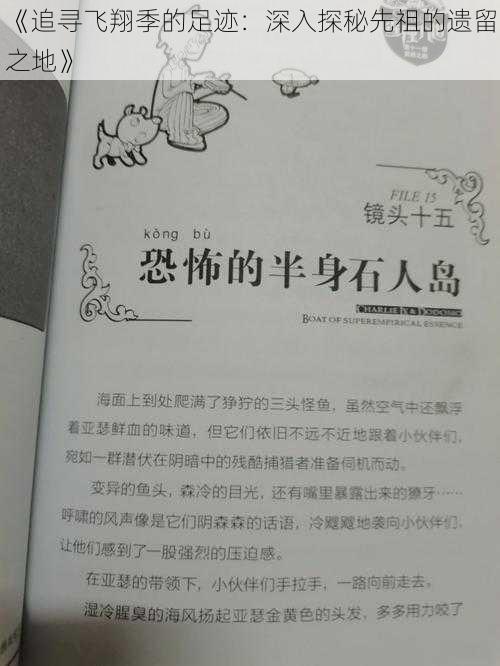 《追寻飞翔季的足迹：深入探秘先祖的遗留
之地》
FILE 15
镜头十五
kǒng bù
恐怖的半身石人岛
CHARLIE IX & DODOMO
BOAT OF SUPEREMPIRICAL ESSENCE
海面上到处爬满了狰狞的三头怪鱼，虽然空气中还飘浮
着亚瑟鲜血的味道，但它们依旧不远不近地跟着小伙伴们，
宛如一群潜伏在阴暗中的残酷捕猎者准备伺机而动。
变异的鱼头，森冷的目光，还有嘴里暴露出来的獠牙……
呼啸的风声像是它们阴森森的话语，冷飕飕地袭向小伙伴们，
让他们感到了一股强烈的压迫感。
在亚瑟的带领下，小伙伴们手拉手，一路向前走去。
湿冷腥臭的海风扬起亚瑟金黄色的头发，多多用力咬了